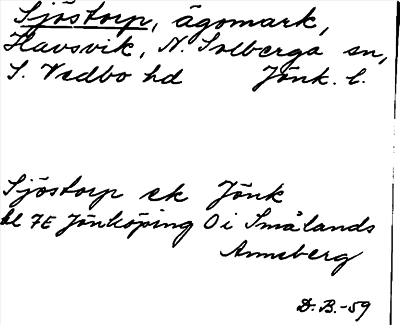 Sjöstorp, ägomark,
Havsvik, N. Solberga sn,
S. Vedbo hd Jönk. l.
Sjöstorp ek Jönk
bl 7E Jönköping O i Smålands
Anneberg
D.B.-59